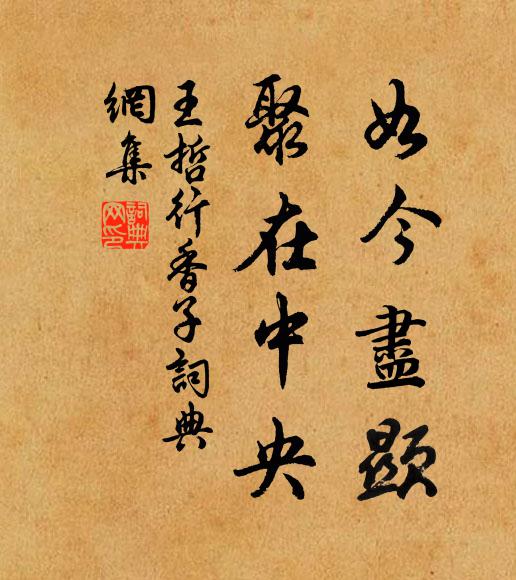 如今盡顯
聚在中央
王哲行香子詞典
網集
詞典
網印